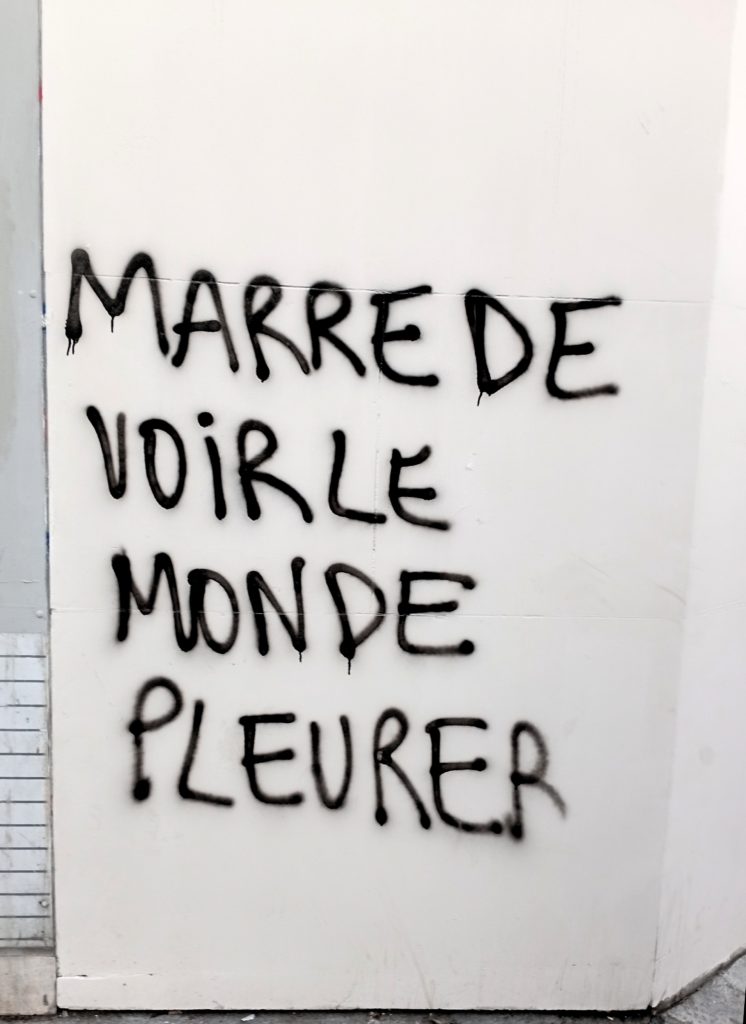 MARRE DE
VOiR LE
MONDE
PLEURER